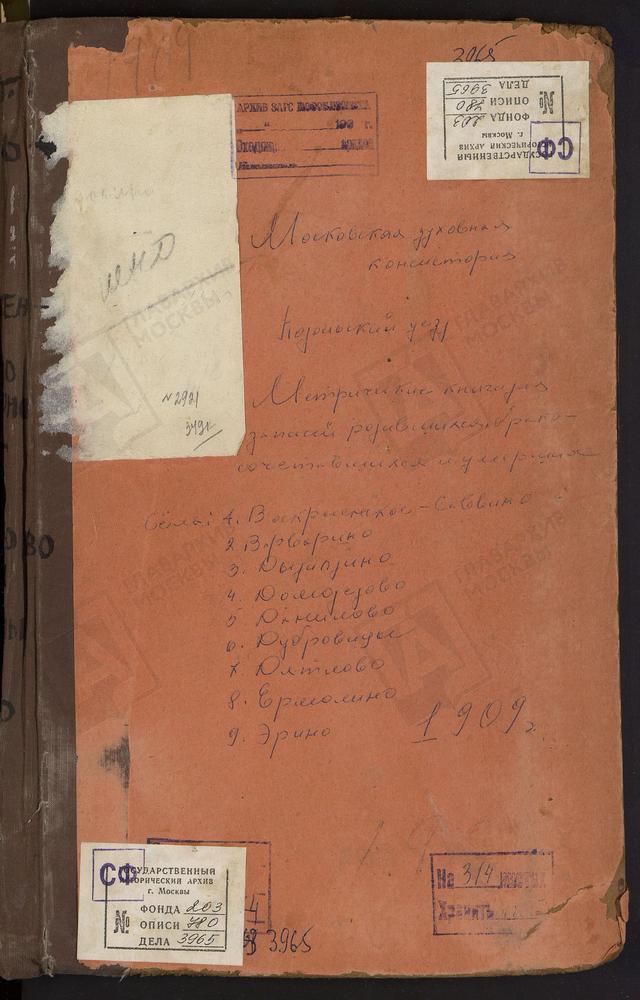 3965
ГОСУДАРСТВЕННЫЙ
ИСТОРИЧЕСКИЙ АРХИВ
г. Москвы
ФОНДА 203
№ ОПИСИ 780
ДЕЛА 3965
СФ
АРХИВ ЗАГС МОСОБЛИСПОЛКОМА
193 г.
№ 2921
3491
Московская духовная
консистория
Подольский уезд
Метрические книги для
записей родившихся, брако-
сочетавшихся и умерших
Сёла: 1. Воскресенское-Саввино
2. Варварино
3. Дыдылдино
4. Домодедово
5. Данилово
6. Дубровицы
7. Дятлово
8. Ермолино
9. Эрино
1909 г.
На 314 листах
Хранить
СФ
ГОСУДАРСТВЕННЫЙ
ИСТОРИЧЕСКИЙ АРХИВ
г. Москвы
ФОНДА 203
№ ОПИСИ 780
ДЕЛА 3965
3965
ГЛАВАРХИВ
МОСКВЫ